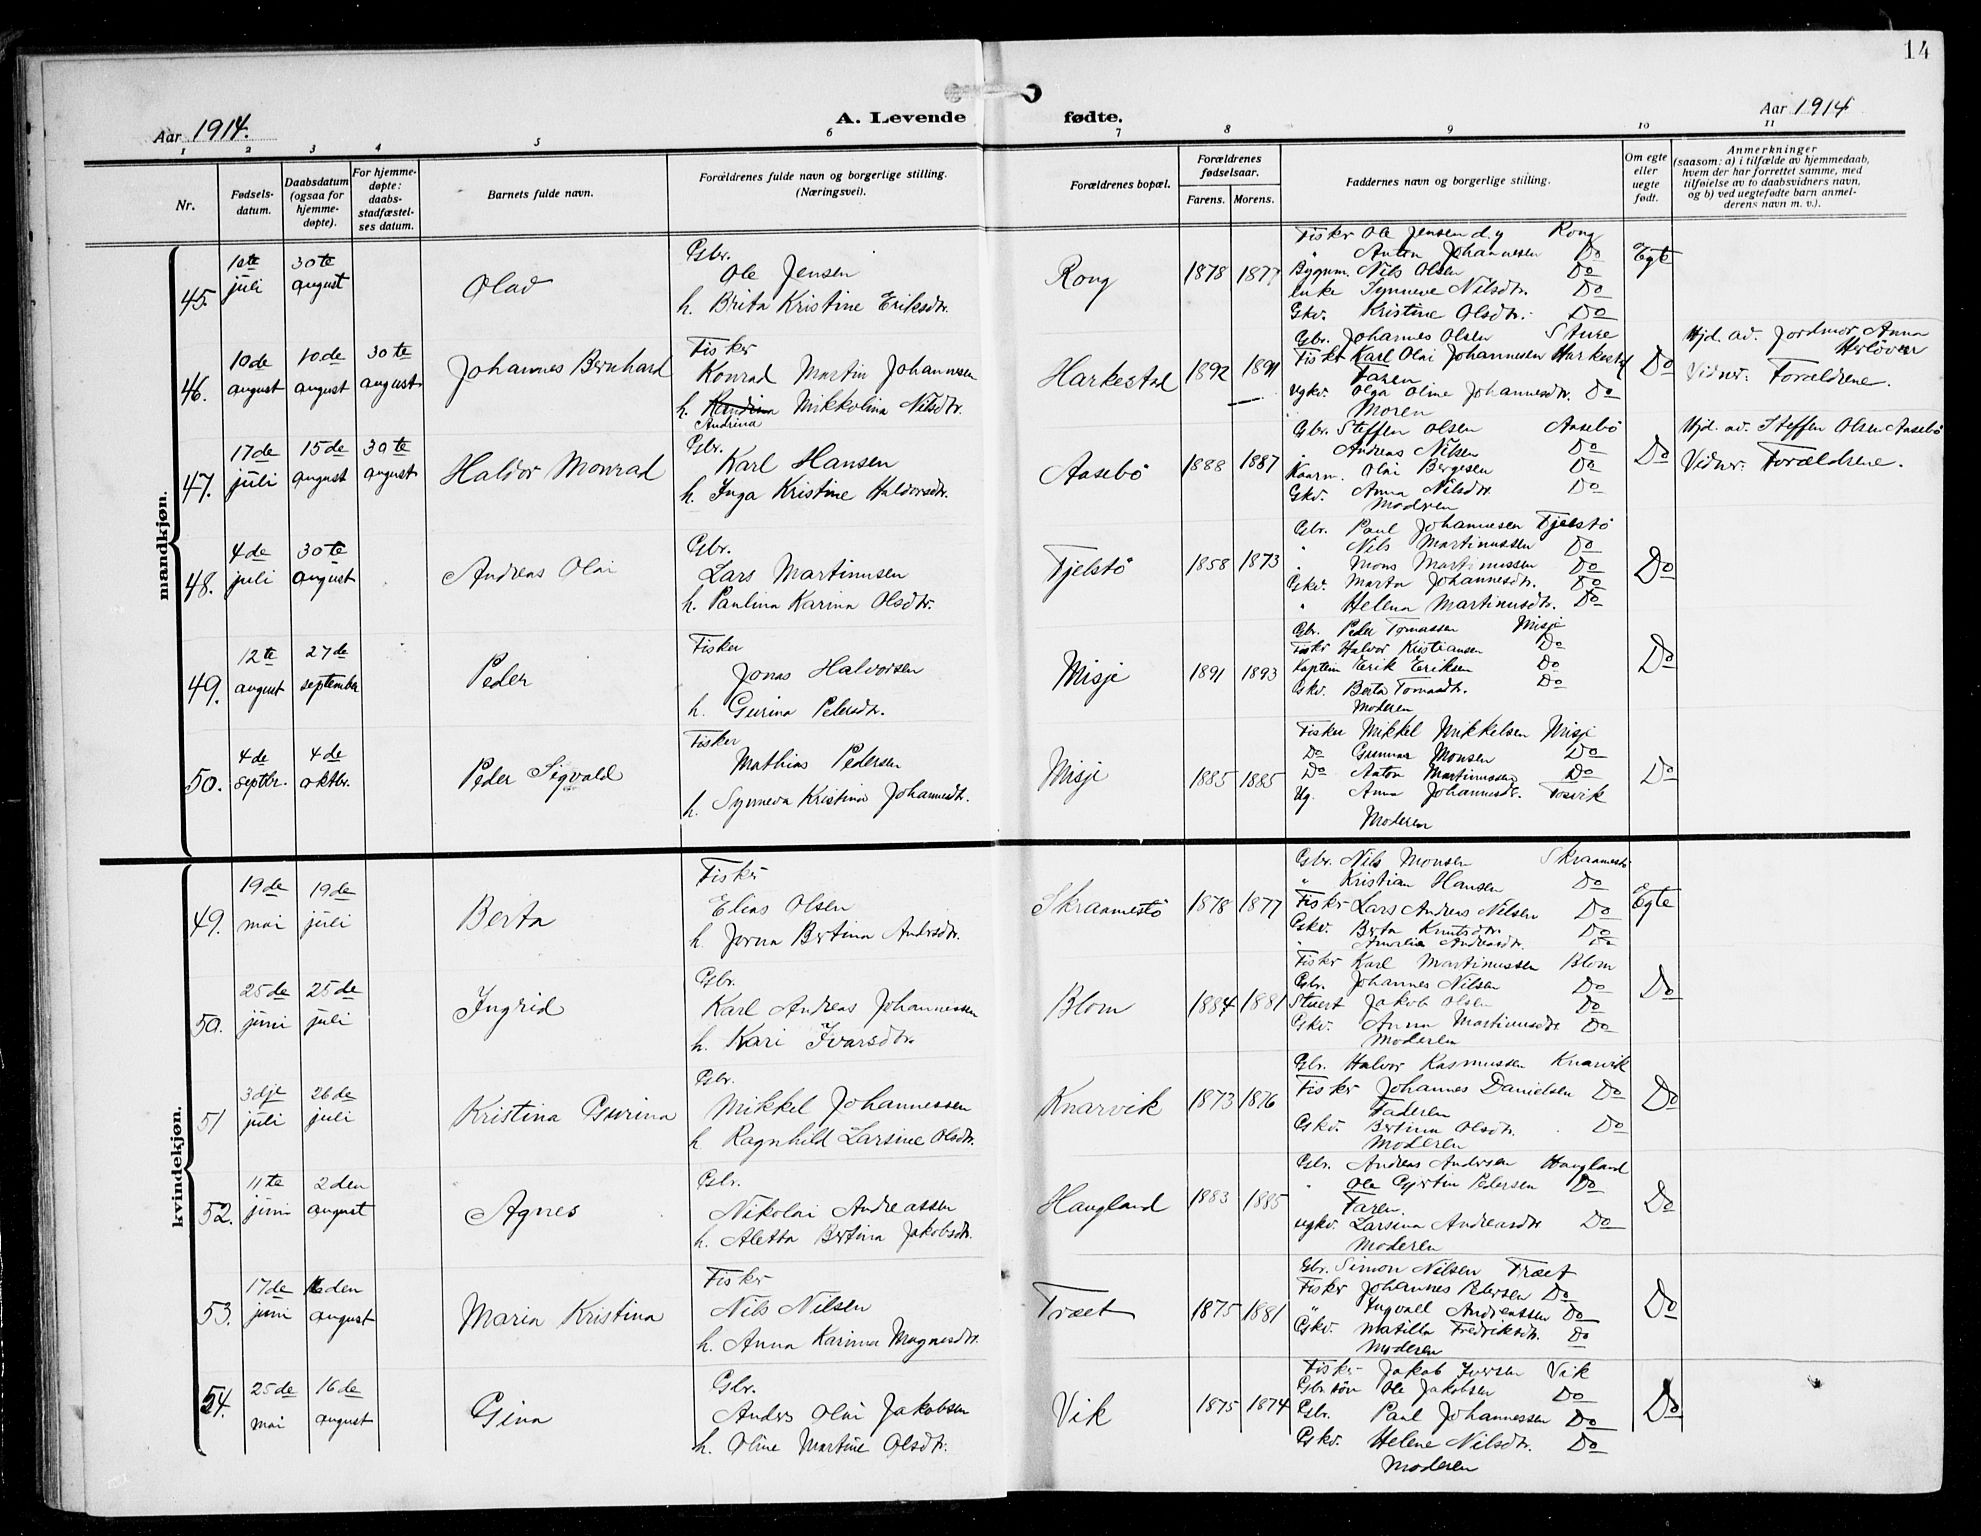 14
Aar 1914.
A. Levende fødte.
Aar 1914
1 2 3 4 5 6 7 8 9 10 11
Nr.
Fødsels-
datum.
Daabsdatum
(ogsaa for
hjemme-
døpte).
For hjemme-
døpte:
daabs-
stadfæstel-
ses datum.
Barnets fulde navn.
Forældrenes fulde navn og borgerlige stilling.
(Næringsvei).
Forældrenes bopæl.
Forældrenes
fødselsaar.
Farens. Morens.
Faddernes navn og borgerlige stilling.
Om egte
eller
uegte
født.
Anmerkninger
(saasom: a) i tilfælde av hjemmedaab,
hvem der har forrettet samme, med
tilføielse av to daabsvidners navn,
og b) ved uegtefødte barn anmel-
derens navn m. v.).
mandkjøn.
45. 10te juli 30te august
Olav
Gbr.
Ole Jensen
h. Brita Kristine Eriksdtr.
Rong 1878 1877
Fisker Ole Jensen d.y Rong
" Anton Johannesen Do
Bygnm. Nils Olsen Do
enke Synneve Nilsdtr. Do
Gkv. Kristine Olsdtr. Do
Egte
46. 10de august 10de august 30te august
Johannes Bernhard
Fisker
Konrad Martin Johannsen
h. Mikkolina Nilsdtr.
Andrina
Harkestad 1892 1891
Gbr. Johannes Olsen Sture
Fisk Karl Olai Johannesen Harkestad
Faren
ugkv. Olga Oline Johannesdtr. Do
Moren
Do
Hjd. av. Jordmor Anna
Vidner: Forældrene.
47. 17de juli 15de august 30te august
Haldor Monrad
Gbr.
Karl Hansen
h. Inga Kristine Haldorsdtr.
Aasebö 1888 1887
Gbr. Steffen Olsen Aasebö
" Andreas Nilsen Do
Kaarm. Olai Bergesen Do
Gkv. Anna Nilsdtr. Do
Modren
Do
Hjd. av. Steffen Olsen Aasebö
Vidner: Forældrene.
48. 4de juli 30te august
Andreas Olai
Gbr.
Lars Martinusen
h. Paulina Karina Olsdtr.
Fjelstö 1858 1873
Gbr. Paul Johannesen Fjelstö
" Nils Martinussen Do
" Mons Martinussen Do
Gkv. Marta Johannesdtr. Do
" Helena Martinusdtr. Do
Do
49. 12te august 27de september
Peder
Fisker
Jonas Halvorsen
h. Gurina Pedersdtr.
Misje 1891 1893
Gbr. Peder Tomassen Misje
Fiskr Halvor Kristiansen Do
Kaptein Erik Eriksen Do
Gkv. Berta Tomasdtr. Do
Moderen
Do
50. 4de septbr. 4de oktbr.
Peder Sigvald
Fisker
Mathias Pedersen
h. Synneva Kristina Johannesdtr.
Misje 1885 1885
Fisker Mikkel Mikkelsen Misje
Do Gunnar Monsen Do
Do Anton Martinussen Do
Ug. Anna Johannesdr.
Moderen
Do
kvindekjøn.
49. 19de mai 19de juli
Berta
Fisker
Elias Olsen
h. Bertina Andrsdtr.
Skraamestö 1878 1877
Gbr. Nils Monsen Skraamestö
" Kristian Hansen Do
Fisker Lars Andreas Nilsen Do
Gskv. Berta Knutsdtr. Do
" Amalia Andreasdtr. Do
Egte
50. 25de juni 25de juli
Ingrid
Gbr.
Karl Andreas Johannessen
h. Kari Ivarsdtr.
Blom 1884 1881
Fisker Karl Martinussen Blom
Gbr. Johannes Nilsen Do
Stuert Jakob Olsen Do
Gskv. Anna Martinusdtr Do
Moderen
Do
51 3dje juli 26de juli
Kristina Gurina
Gbr.
Mikkel Johannessen
h Ragnhild Larsine Olsdtr.
Knarvik 1873 1876
Gbr. Halvor Rasmussen Knarvik
Fisker Johannes Danielsen Do
Faderen
Gskv. Bertina Olsdtr. Do
Moderen
Do
52. 11te juni 2den august
Agnes
Gbr.
Nikolai Andreassen
h. Aletta Bertina Jakobsdtr.
Haugland 1883 1885
Gbr. Andreas Andersen Haugland
" Ole Gjertin Pedersen Do
Faren.
ugkv. Larsina Andreasdtr Do
Moderen
Do
53. 17de juni 16den august
Maria Kristina
Fisker
Nils Nilsen
h. Anna Karina Magnesdtr.
Træet 1875 1881
Gbr. Simon Nilsen Træet
Fiskr Johannes Petersen Do
" Ingvall Andreassen Do
Gskv. Matilla Fredriksdtr. Do
Moderen
Do
54. 25de mai 16de august
Gina
Gbr.
Anders Olai Jakobsen
h. Oline Martine Olsdtr.
Vik 1875 1874
Fisker Jakob Iversen Vik
Gbr. søn Ole Jakobsen Do
Gbr. Paul Johannessen Do
Gskv. Helene Nilsdtr. Do
Moderen
Do